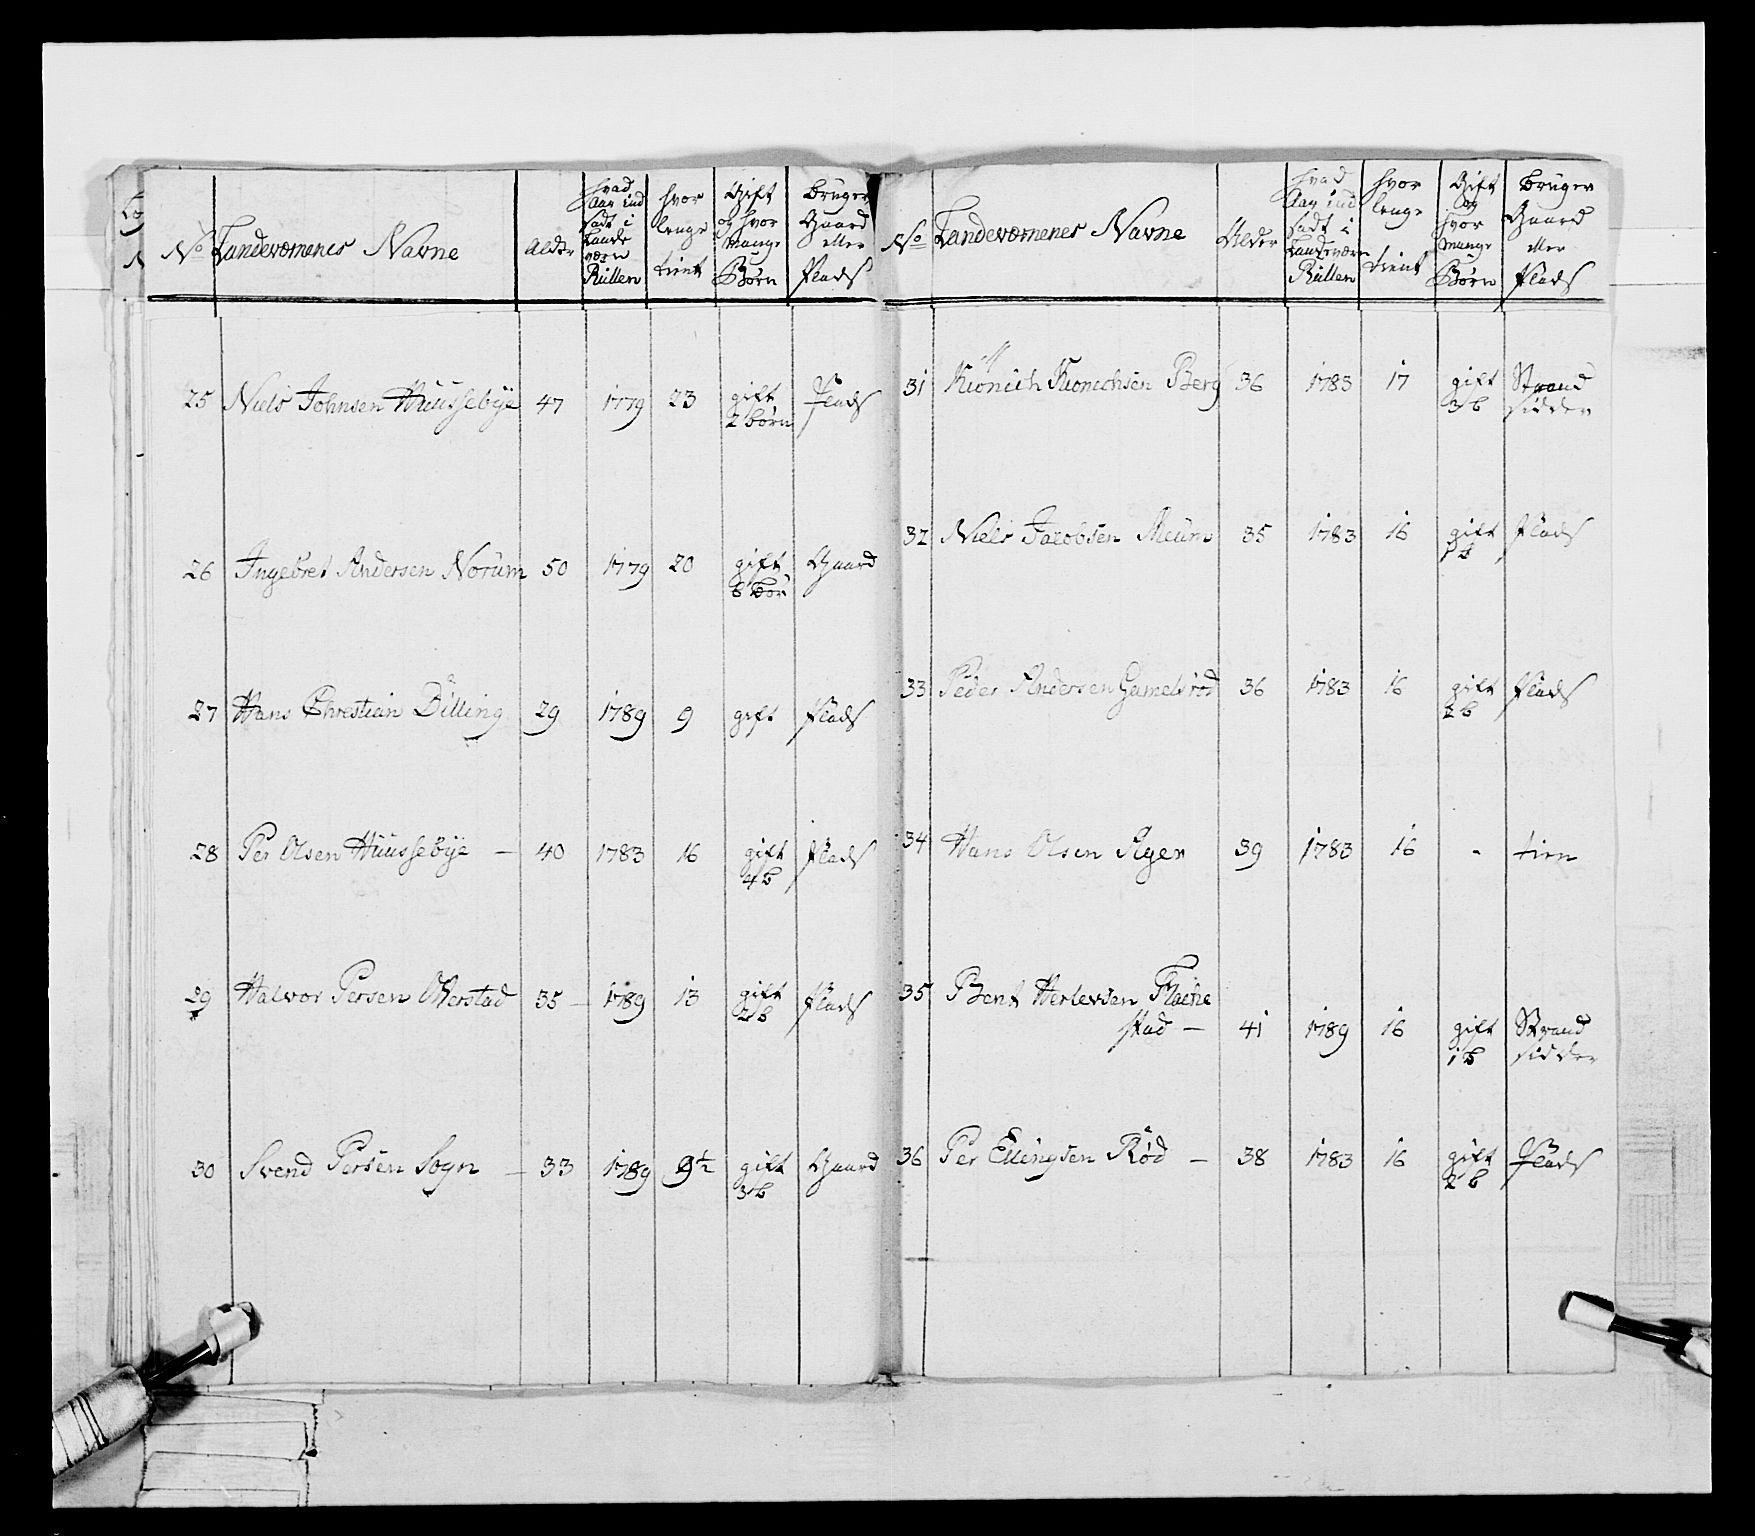 No Landeværnenes Navne Alder hvad Aar ind sadt i Lande værn Rullen hvor lenge tient Gift og hvor mange Børn bruger Gaard eller Plads
25 Niels Johnsen Huussebye 47 1779 23 gift Plads
2 börn
26 Ingebret Andersen Norum 50 1779 20 gift Gaard
6 bör
27 Hans Christian Dilling 29 1789 9 gift Plads
28 Per Olsen Huussebye — 40 1783 16 gift Plads
4 b
29 Halvor Persen 35 — 1789 13 gift Plads
2 b
30 Svend Persen Sogn — 33 1789 9½ gift Gaard
3 b
No Landeværnenes Navne Alder hvad Aar ind sadt i Landeværn Rullen hvor lenge tient Gift og hvor mange Børn bruger Gaard eller Plads
31 Berg 36 1783 17 gift Strand
3 b sidder
32 Niels Jacobsen Meum 35 1783 16 gift Plads
1 b
33 Peder Andersen Gamelsrød 36 1783 16 gift Plads
2 b
34 Hans Olsen Ager 39 1783 16 - tien
35 Bent Herlevsen
stad — 41 1789 16 gift Strand
1 b sidder
36 Per Ellingsen Rød — 38 1783 16 gift Plads
2 b